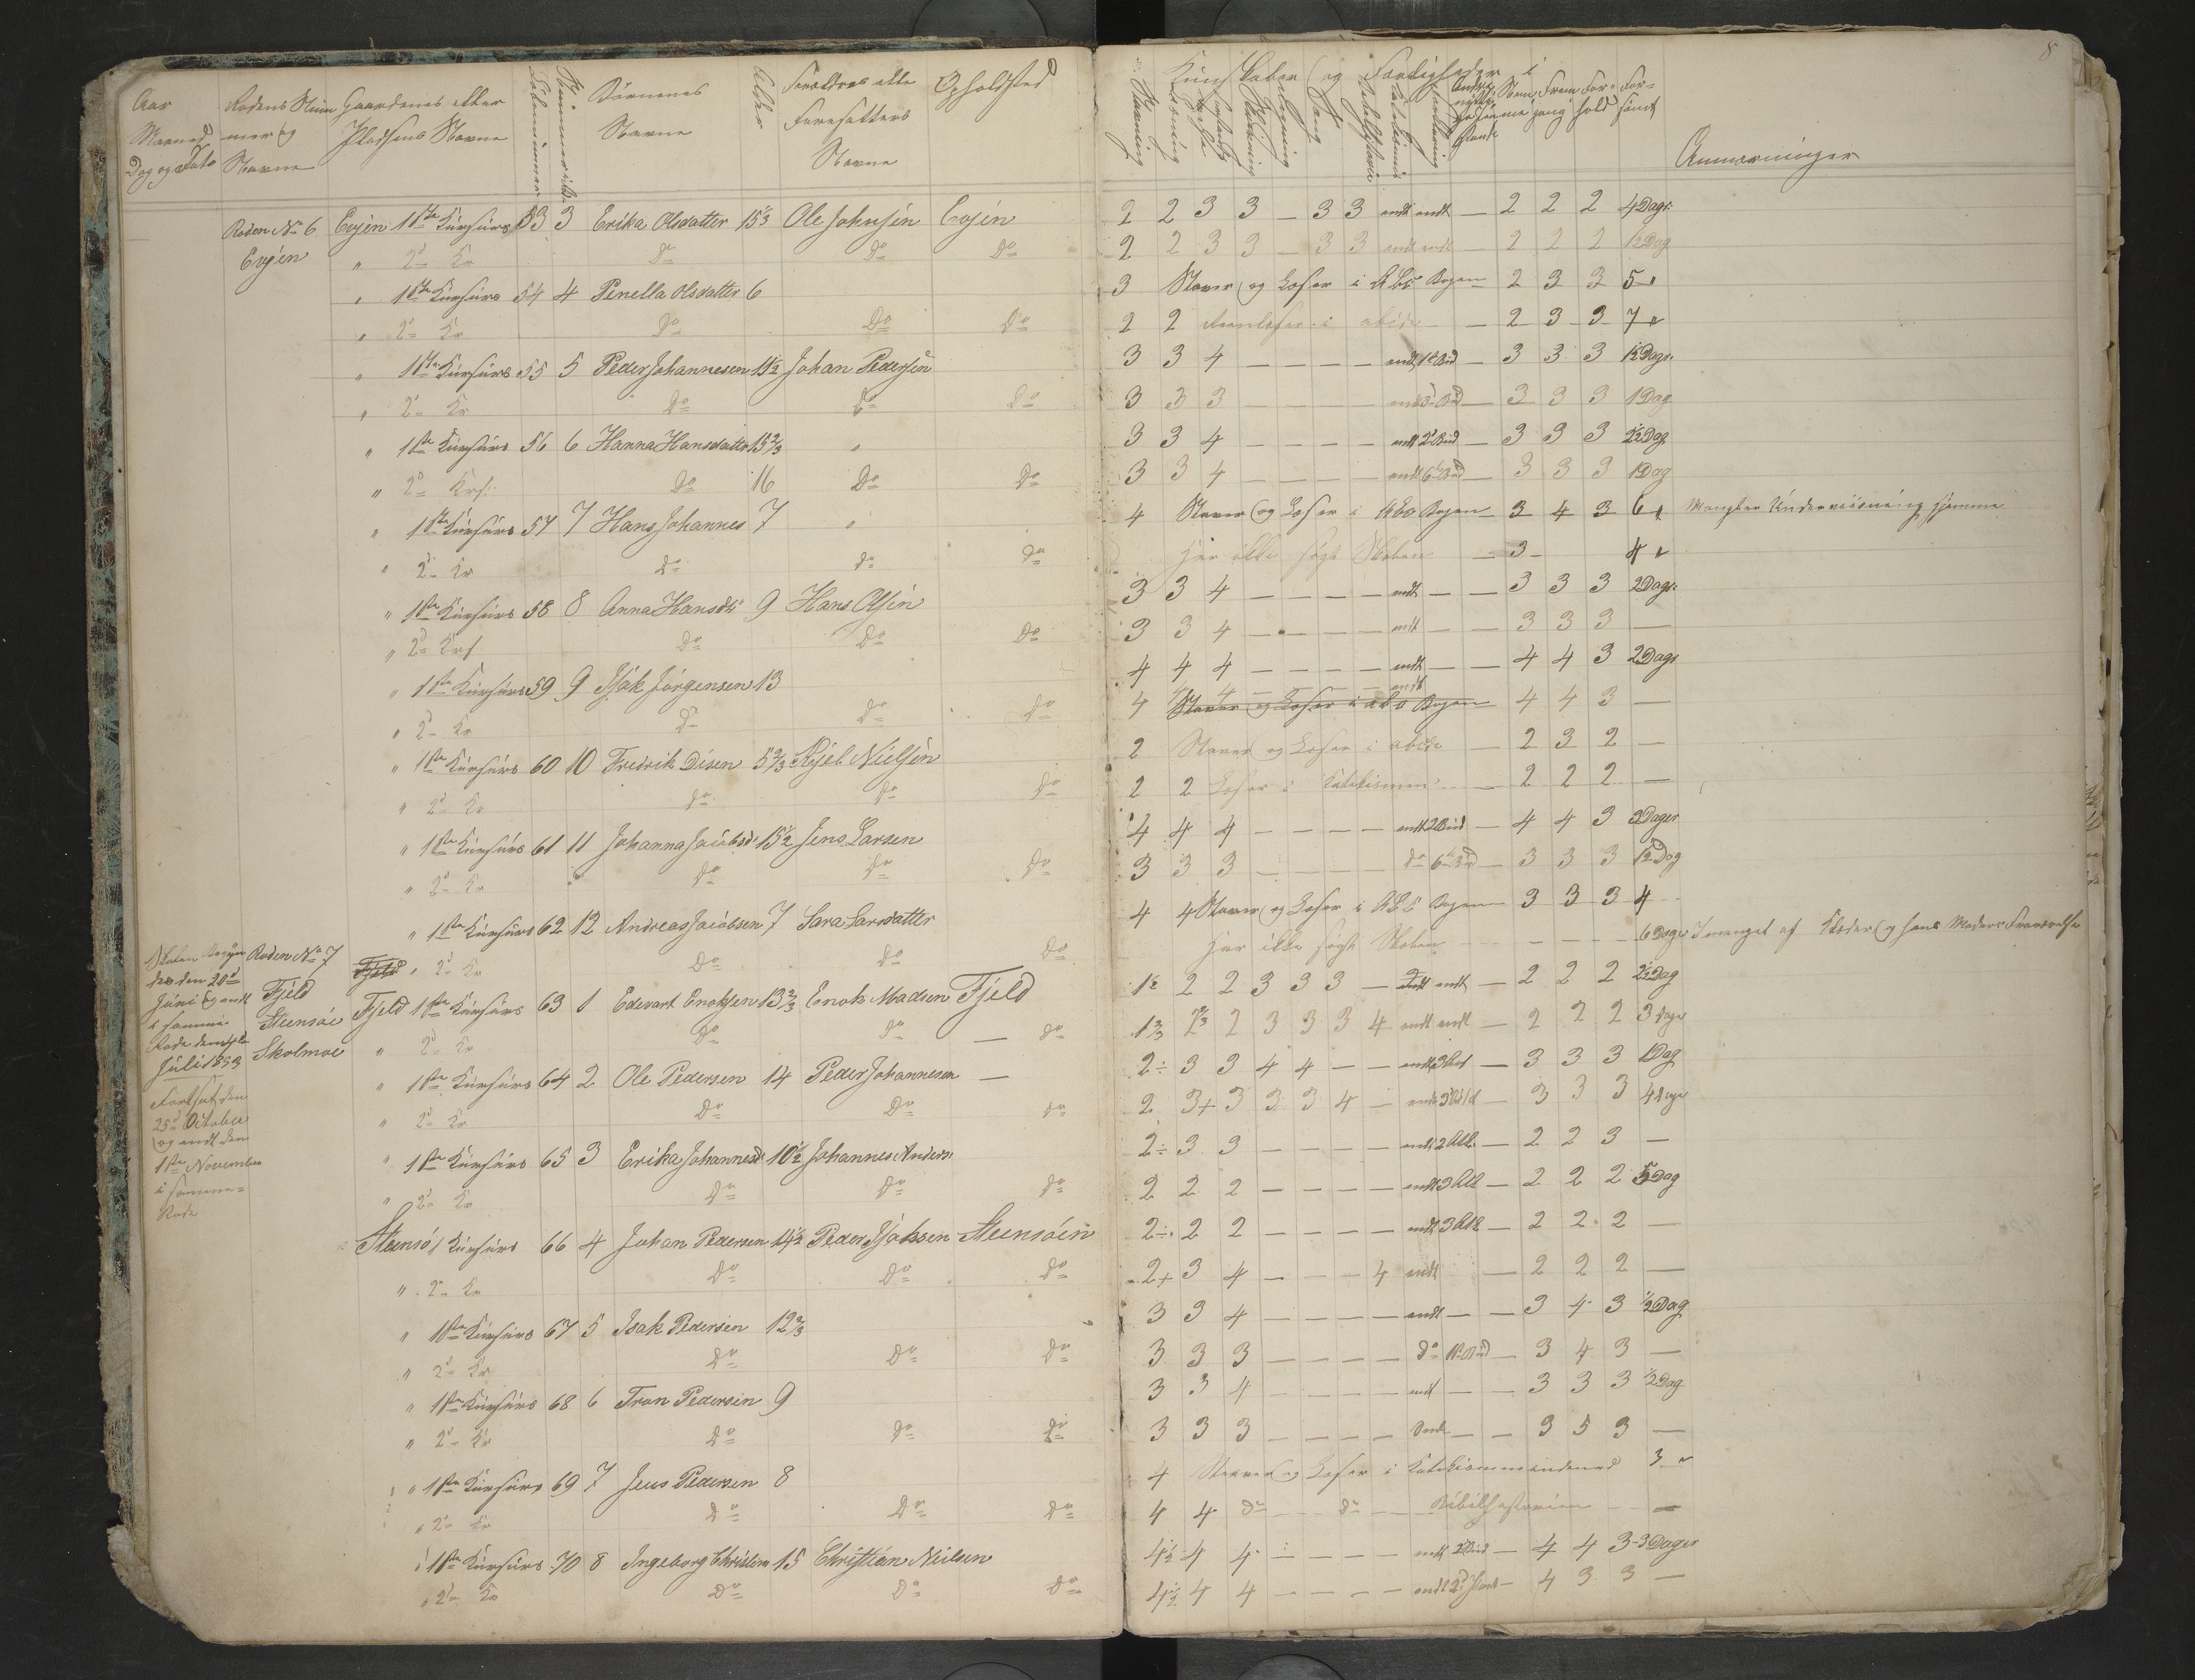 Aar Maaned Dag og Dato
Rodens Nummer og Navne
Gaardenes eller Pladsens Navne
Løbenummer
Børnenes Navne
Alder
Foreldres eller Foresatters Navne
Opholdsted
Kundskaber og Færdigheder i
Anmærninger
8
Roden No 6 Evjen Evjen 1ste Kursus 53 3 Erika Olsdatter 15 1/3 Ole Johnsen Evjen 2 2 3 3 — 3 3 endt endt — 2 2 2 4 Dage
" 2d Kr Do Do Do 2 2 3 3 — 3 3 endt endt — 2 2 2 1½ Dag
" 1ste Kursus 54 4 Penella Olsdatter 6 3 Staver og Læser i ABC Bogen 2 3 3 5 "
" 2d Kr Do Do Do 2 2 — 2 3 3 7 "
" 1ste Kursus 55 5 Peder Johannesen 11½ Johan Pedersen 3 3 4 — — — — endt 1ste Bud — 3 3 3 1½ Dage
" 2d Kr Do Do Do 3 3 3 — — — — endt Bud — 3 3 3 1 Dag
" 1ste Kursus 56 6 Hanna Hansdatter 15 2/3 " 3 3 4 — — — — endt 2d Bud — 3 3 3 2½ Dag
" 2d Krs: Do 16 Do Do 3 3 4 — — — — endt 6te Bud — 3 3 3 1 Dag
" 1ste Kursus 57 7 Hans Johannes 7 " 4 Staver og Læser i Abc Bogen 3 4 3 6 " Mangler Underviisning hjemme
" 2d Kr Do Do Do har ikke søgt Skolen — 3 — 4 "
" 1ste Kursus 58 8 Anna Hansdtr 9 Hans Olsen 3 3 4 — — — — endt — — 3 3 3 2 Dage
" 2d Krs Do Do Do 3 3 4 — — — — endt — — 3 3 3 —
" 1ste Kursus 59 9 Isak Jørgensen 13 4 4 4 — — — — endt — — 4 4 3 2 Dage
" 2d Kr Do Do Do 4 4 4 — — — — endt Staver og Læser i abc Bogen 4 4 3 —
" 1ste Kursus 60 10 Fredrik Disen 5 2/3 Kjel Nielsen 2 Staver og Læser i abc — 2 3 2 —
" 2d Kr Do Do Do 2 2 Læser i Katekismus — 2 2 2 —
" 1ste Kursus 61 11 Johanna Jacobsd: 15½ Jens Larsen 4 4 4 — — — — endt 2 Bud — 4 4 3 2 Dager
" 2d Kr Do Do Do 3 3 3 — — — — do 6te Bud — 3 3 3 1½ Dag
" 1ste Kursus 62 12 Andreas Jacobsen 7 Sara Larsdatter 4 4 Staver og Læser i ABC Bogen 3 3 3 4
Fjeld " 2d Kr Do Do Do har ikke søgt Skolen — — — — 6 Dage I mangel af Klæder og hans Moders Fraværelse
Skolen Begyndes den 20d Juni og endt i samme Rode den Juli 1853
Roden No 7 Fjeld Steensøe Skolmoe
Fjeld 1ste Kursus 63 1 Edevart Enoksen 13 2/3 Enok Madsen Fjeld 1½ 2 2 3 3 3 — endt endt — 2 2 2 2½ Dag
" 2d Kr Do Do — Do 1 2/3 2 2/3 2 3 3 3 4 endt endt — 2 2 2 3 Dage
" 1ste Kursus 64 2 Ole Pedersen 14 Peder Johannesen — 2÷ 3 3 4 4 — — endt — 3 3 3 1 Dag
" 2d Kr Do Do Do 2 3+ 3 3 3 4 — endt — 3 3 3 4 Dage
Fortsat den 25d October og endt den 1ste November i samme Rode
" 1ste Kursus 65 3 Erika Johannesd: 10½ Johannes Anders: 2÷ 3 3 — — — — endt 2 Art. — 2 2 3 —
" 2d Kr Do Do Do 2 2 2 — — — — endt 3 Art — 2 2 2 5 Dag
Steensø 1 Kursus 66 4 Johan Pedersen 14½ Peder Isaksen Steensøen 2÷ 2 2 — — — — endt 3 Art — 2 2 2 —
" 2d Kr Do Do Do 2+ 3 4 — — — 4 endt — 2 2 2 —
" 1ste Kursus 67 5 Isak Pedersen 12 2/3 3 3 4 — — — — endt — — 3 4 3 ½ Dag
" 2d Kr Do Do Do 3 3 3 — — — — do 1ste Bud — 3 4 3 —
" 1ste Kursus 68 6 Tron Pedersen 9 3 3 4 — — — — endt — — 3 3 3 ½ Dag
" 2d Kr Do Do Do 3 3 3 — — — — — — 3 5 3 —
" 1ste Kursus 69 7 Jens Pedersen 8 4 Staver og Læser i 3 "
" 2d Kr Do Do Do 4 4 do — do — Bibelhistorien —
" 1ste Kursus 70 8 Ingeborg Christian 15 Christian Nielsen 4½ 4 4 — — — — endt Bud — 4 4 3 3 Dager
" 2d Kr Do Do Do 4½ 4 4 — — — — endt 2d — 4 3 3 —